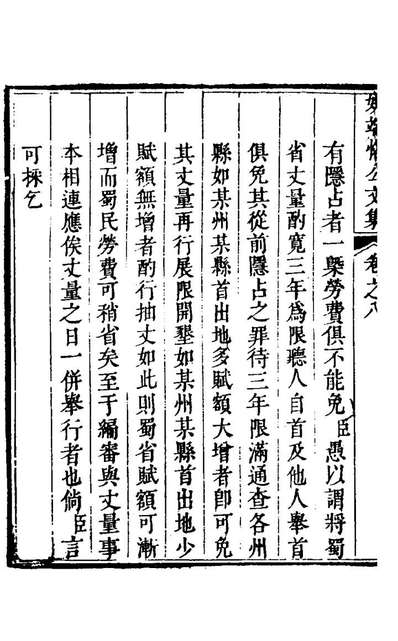 姚端恪公文集
卷之八
有隱占者一槩勞費俱不能免臣愚以謂將蜀
省丈量酌寬三年爲限聽人自首及他人舉首
俱免其從前隱占之罪待三年限滿通查各州
縣如某州某縣首出地多賦額大增者卽可免
其丈量再行展限開墾如某州某縣首出地少
賦額無增者酌行抽丈如此則蜀省賦額可漸
增而蜀民勞費可稍省矣至于編審與丈量事
本相連應俟丈量之日一併舉行者也倘臣言
可採乞